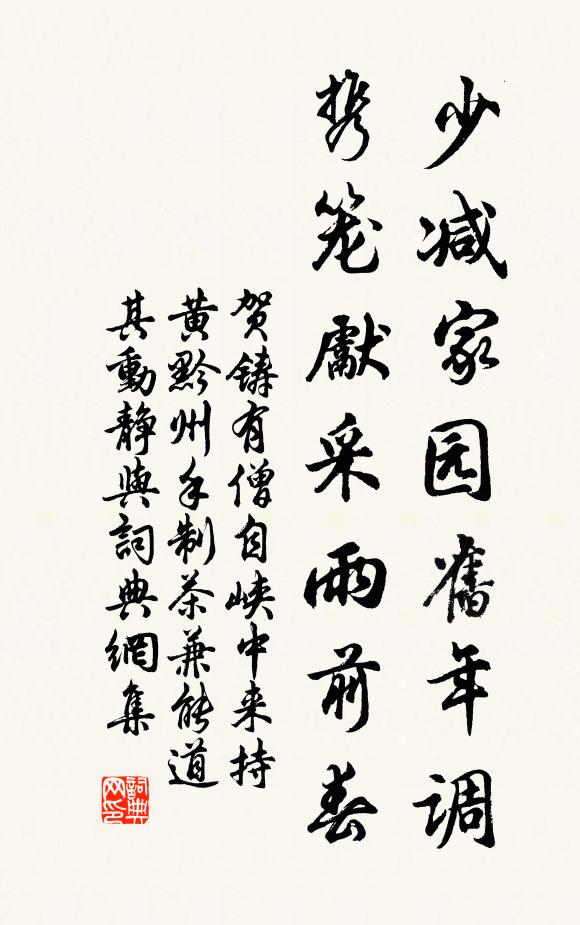 少减家园舊年调
携笼獻采雨前春
贺铸有僧自峡中来持
黄黔州手制茶兼能道
其動静與詞典網集
詞典网印